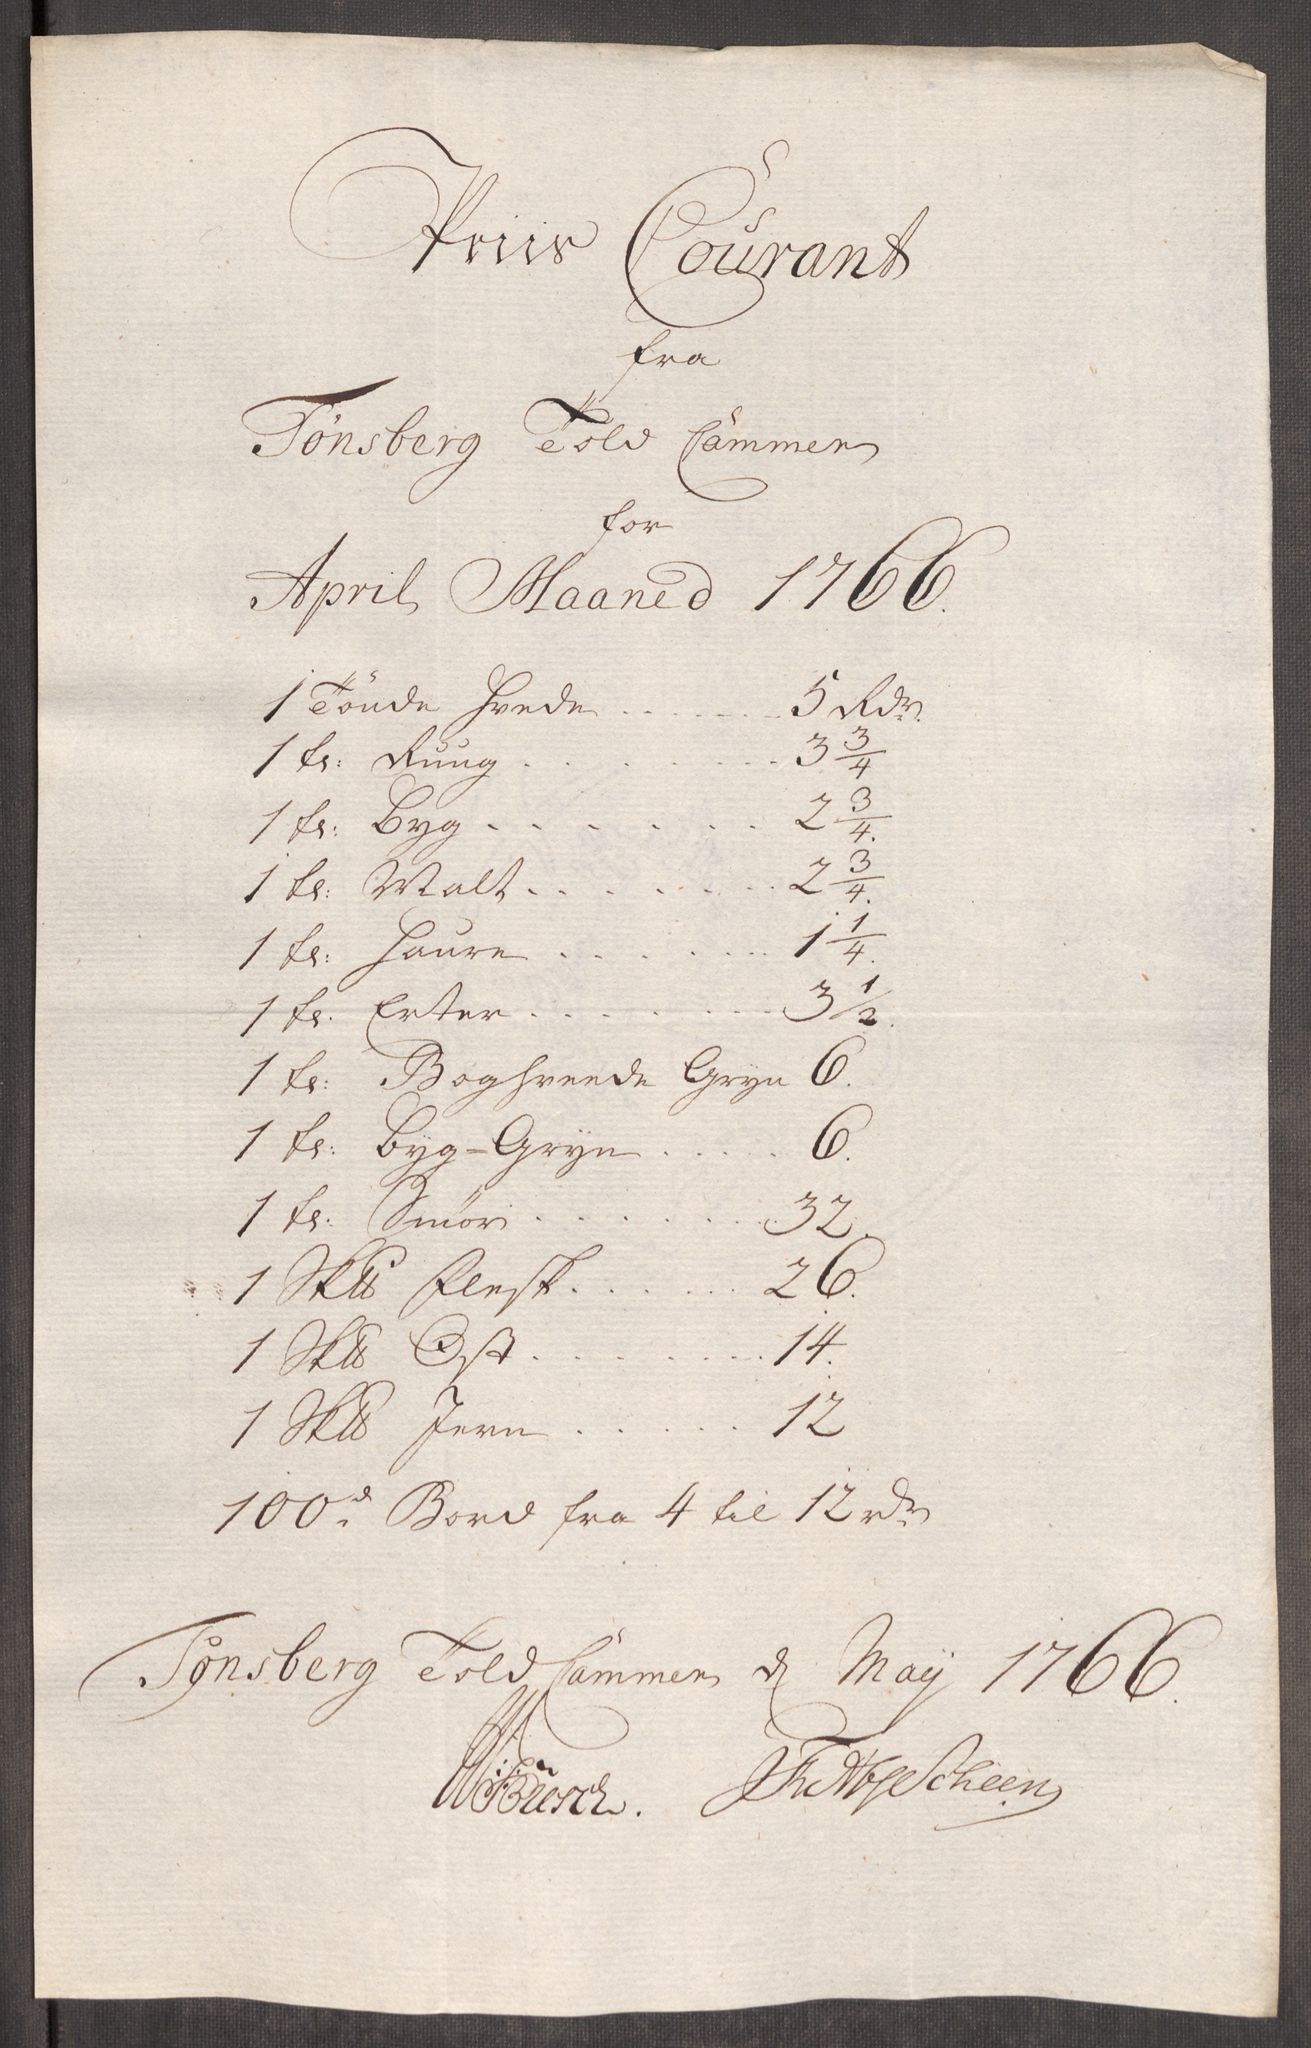 Priis Courant
fra
Tønsberg Told Cammer
for
April Maaned 1766.
1 Tönde Hvede . . . . . . 5 Rdr.
1 tr: Ruug . . . . . . . . 3 3/4
1 tr: Byg . . . . . . . 2 3/4.
1 tr: Malt . . . . . . . 2 3/4.
1 tr: Haure . . . . . . 1 1/4.
1 tr. Erter . . . . . . . 3 1/2.
1 tr: Boghveede Gryn 6.
1 tr: Byg-Gryn . . . . . 6.
1 tr: Smör . . . . . . . 32.
1 Sk℔ Flesk . . . . . . 26.
1 Sk℔ Ost . . . . . . . 14.
1 Sk℔ Jern . . . . . . 12
100d Bord fra 4 til 12 rdr
Tønsberg Told Cammer d May 1766.
Büsch. Scheen